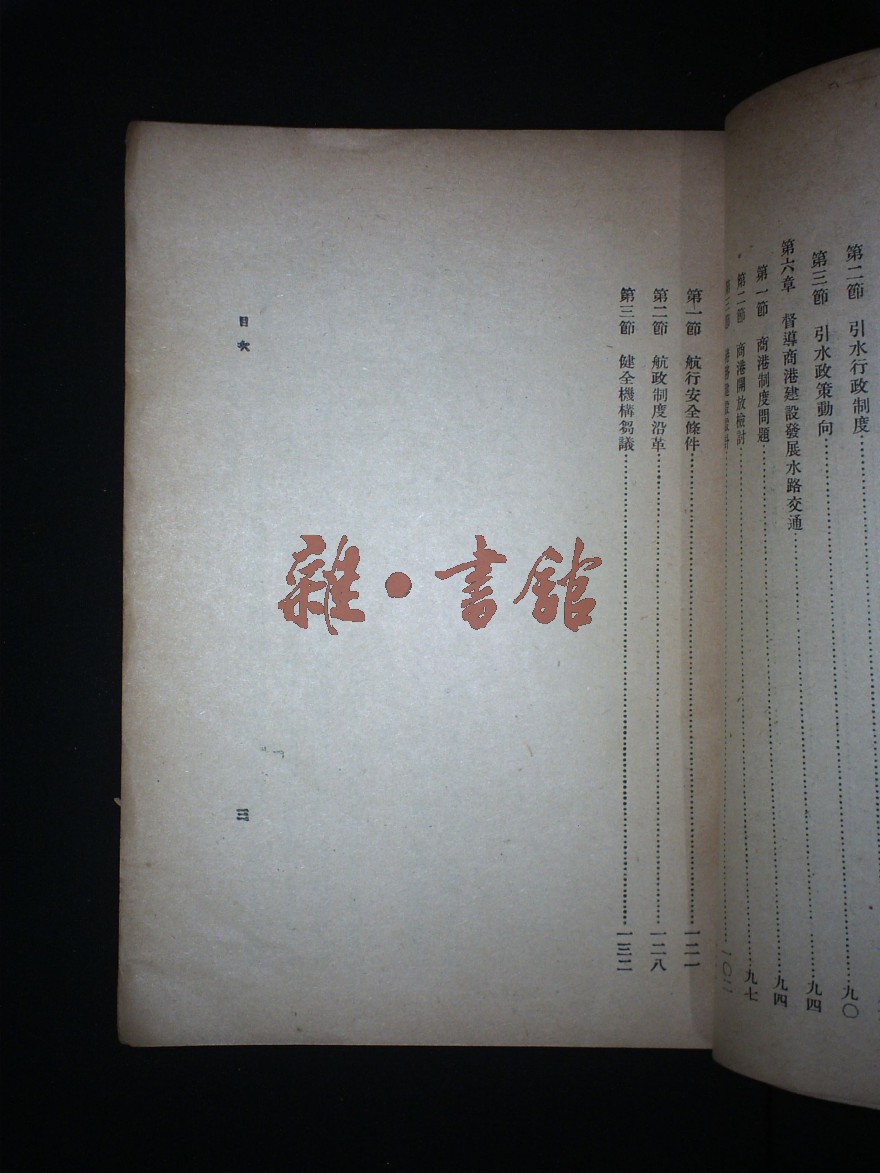 第二節 引水行政制度……
第三節 引水政策動向……九〇
第六章 督導商港建設發展水路交通……九四
第一節 商港制度問題……九四
第二節 商港開放檢討……九七
第三節 建設設計……一〇二
第一節 航行安全條件……一二一
第二節 航政制度沿革……一二八
第三節 健全機構芻議……一三二
目次 三
雜•書館